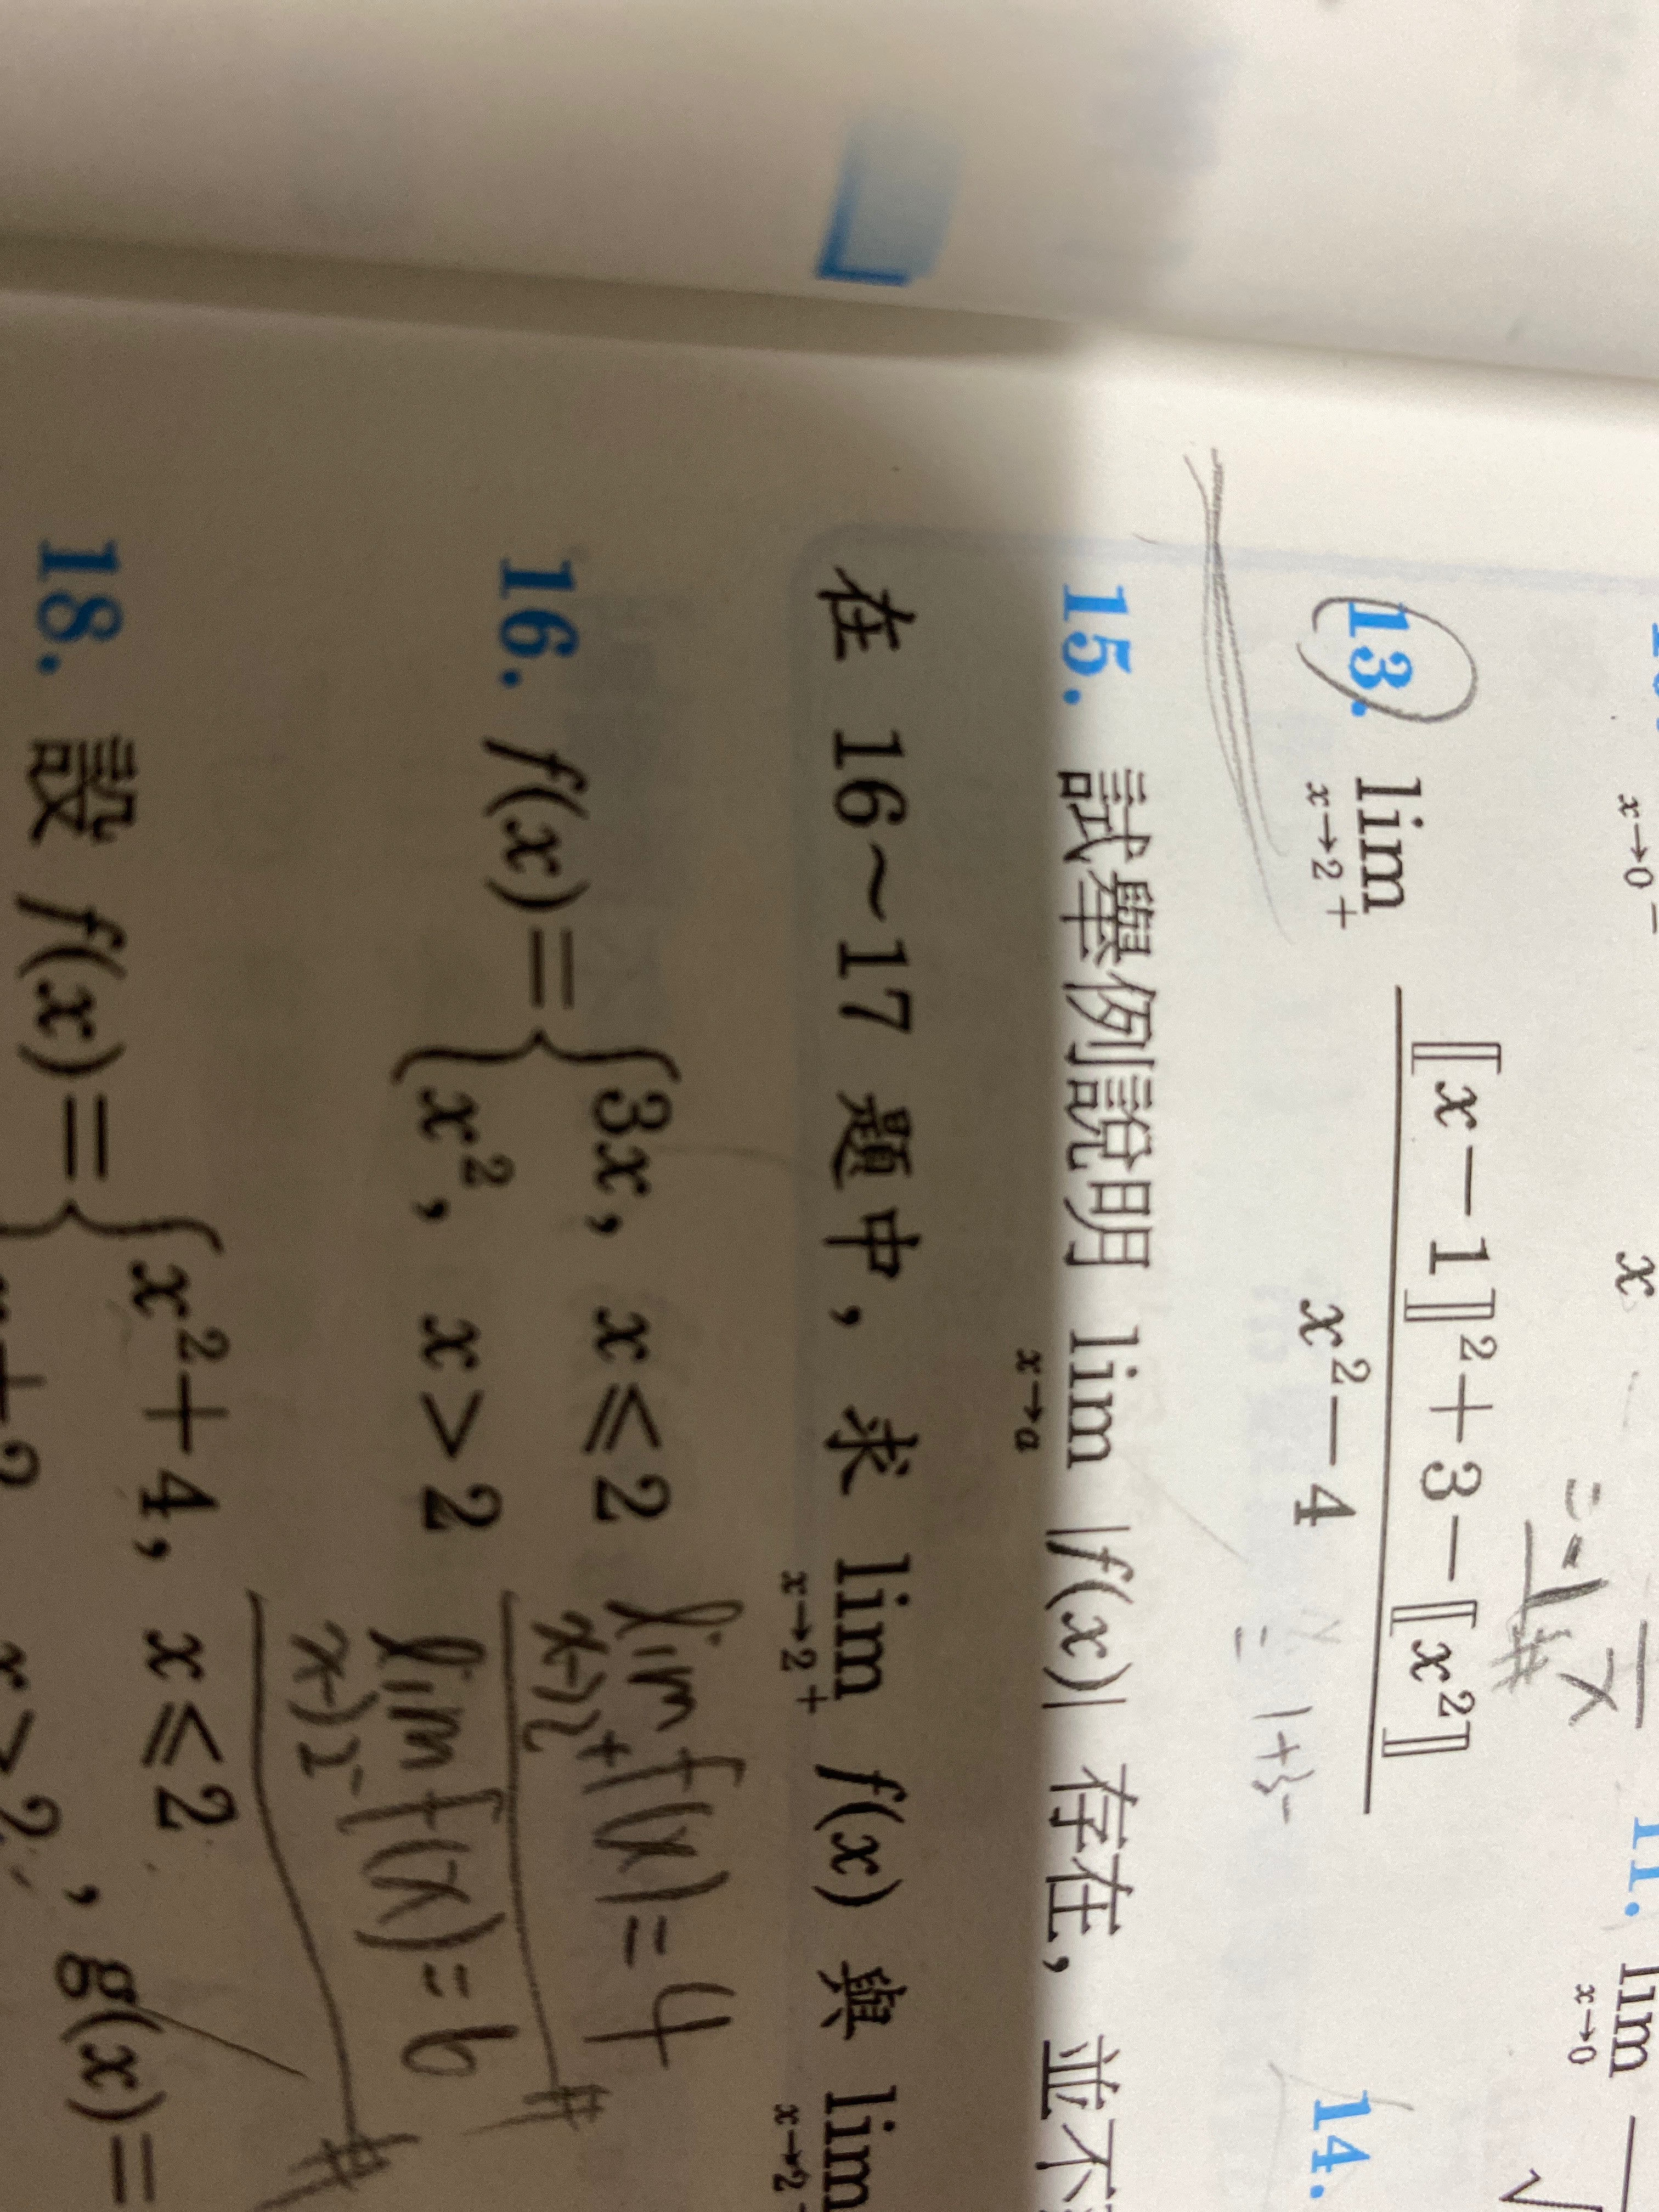 x→0⁻ x
= -1 #
11. lim x→0
13. lim x→2⁺ ⟦x−1⟧²+3−⟦x²⟧ / x²−4
14. √
= 1+3-
15. 試舉例說明 lim x→a |f(x)| 存在,並不
在 16~17 題中,求 lim x→2⁺ f(x) 與 lim x→2⁻
16. f(x)={3x, x≤2
x², x>2
lim x→2⁺ f(x)=4 #
lim x→2⁻ f(x)=6 #
18. 設 f(x)={x²+4, x≤2
x>2, g(x)=